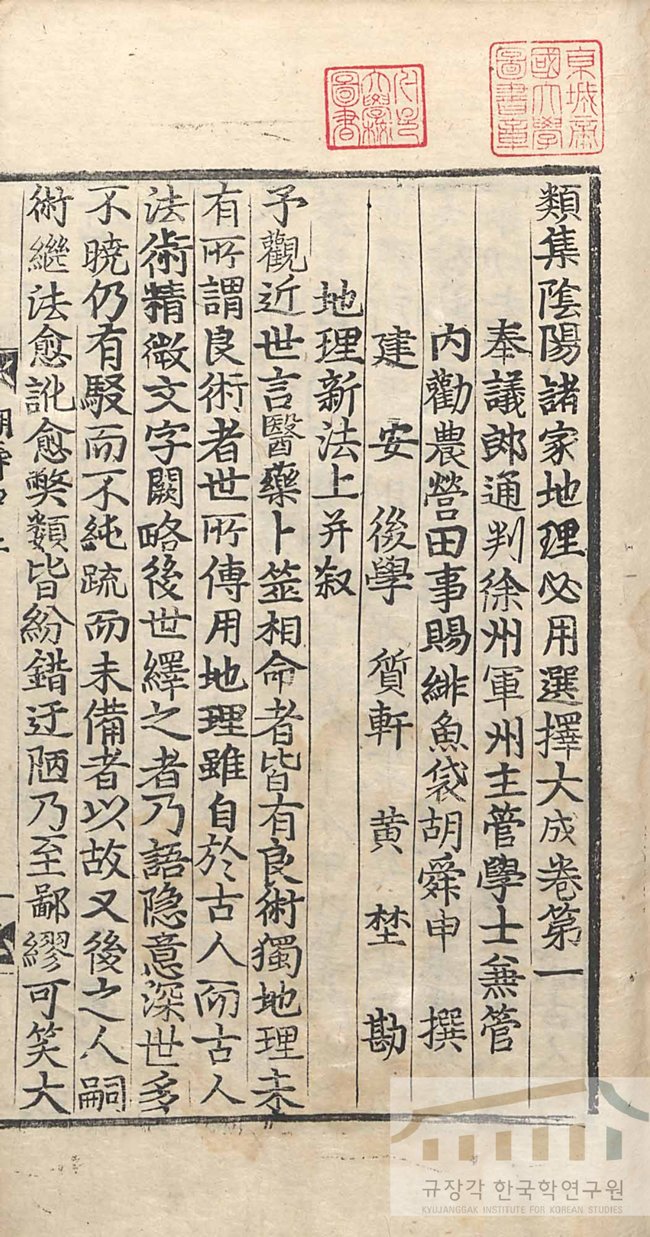 類集陰陽諸家地理必用選擇大成卷第一
奉議郎通判徐州軍州主管學士兼管
內勸農營田事賜緋魚袋胡舜申 撰
建安後學質軒黄埜勘
地理新法上并叙
予觀近世言醫藥卜筮相命者皆有良術獨地理未
有所謂良術者世所傳用地理雖自於古人而古人
法術精微文字闕略後世繹之者乃語隐意深世多
不曉仍有駁而不純疏而未備者以故又後之人嗣
術繼法愈訛愈獘類皆紛錯迂陋乃至鄙繆可笑大
京城帝
國大學
圖書章
大學校
圖書
규장각 한국학연구원
KYUJANGGAK INSTITUTE FOR KOREAN STUDIES